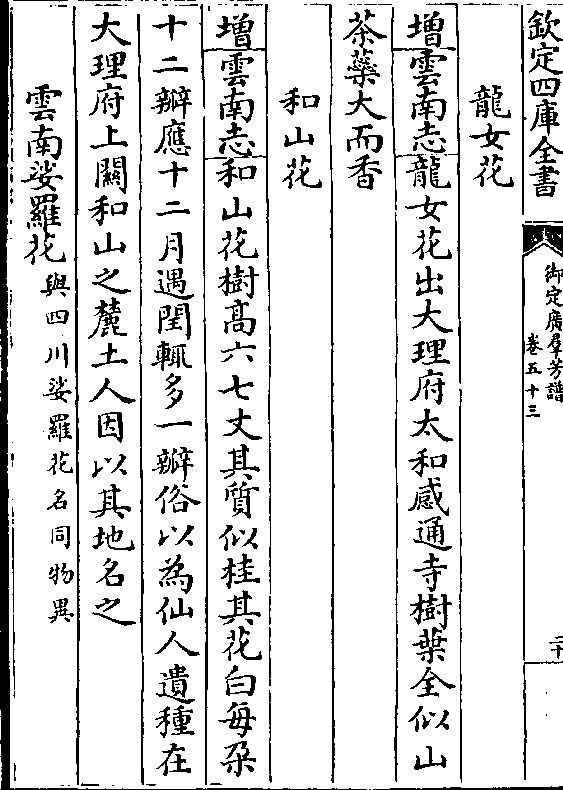 欽定四庫全書
御定廣羣芳譜
卷五十三
二十
龍女花
增雲南志龍女花出大理府太和感通寺樹葉全似山
茶蘂大而香
和山花
增雲南志和山花樹髙六七丈其質似桂其花白每朶
十二瓣應十二月遇閏輒多一瓣俗以為仙人遺種在
大理府上關和山之麓土人因以其地名之
雲南娑羅花與四川娑羅花名同物異